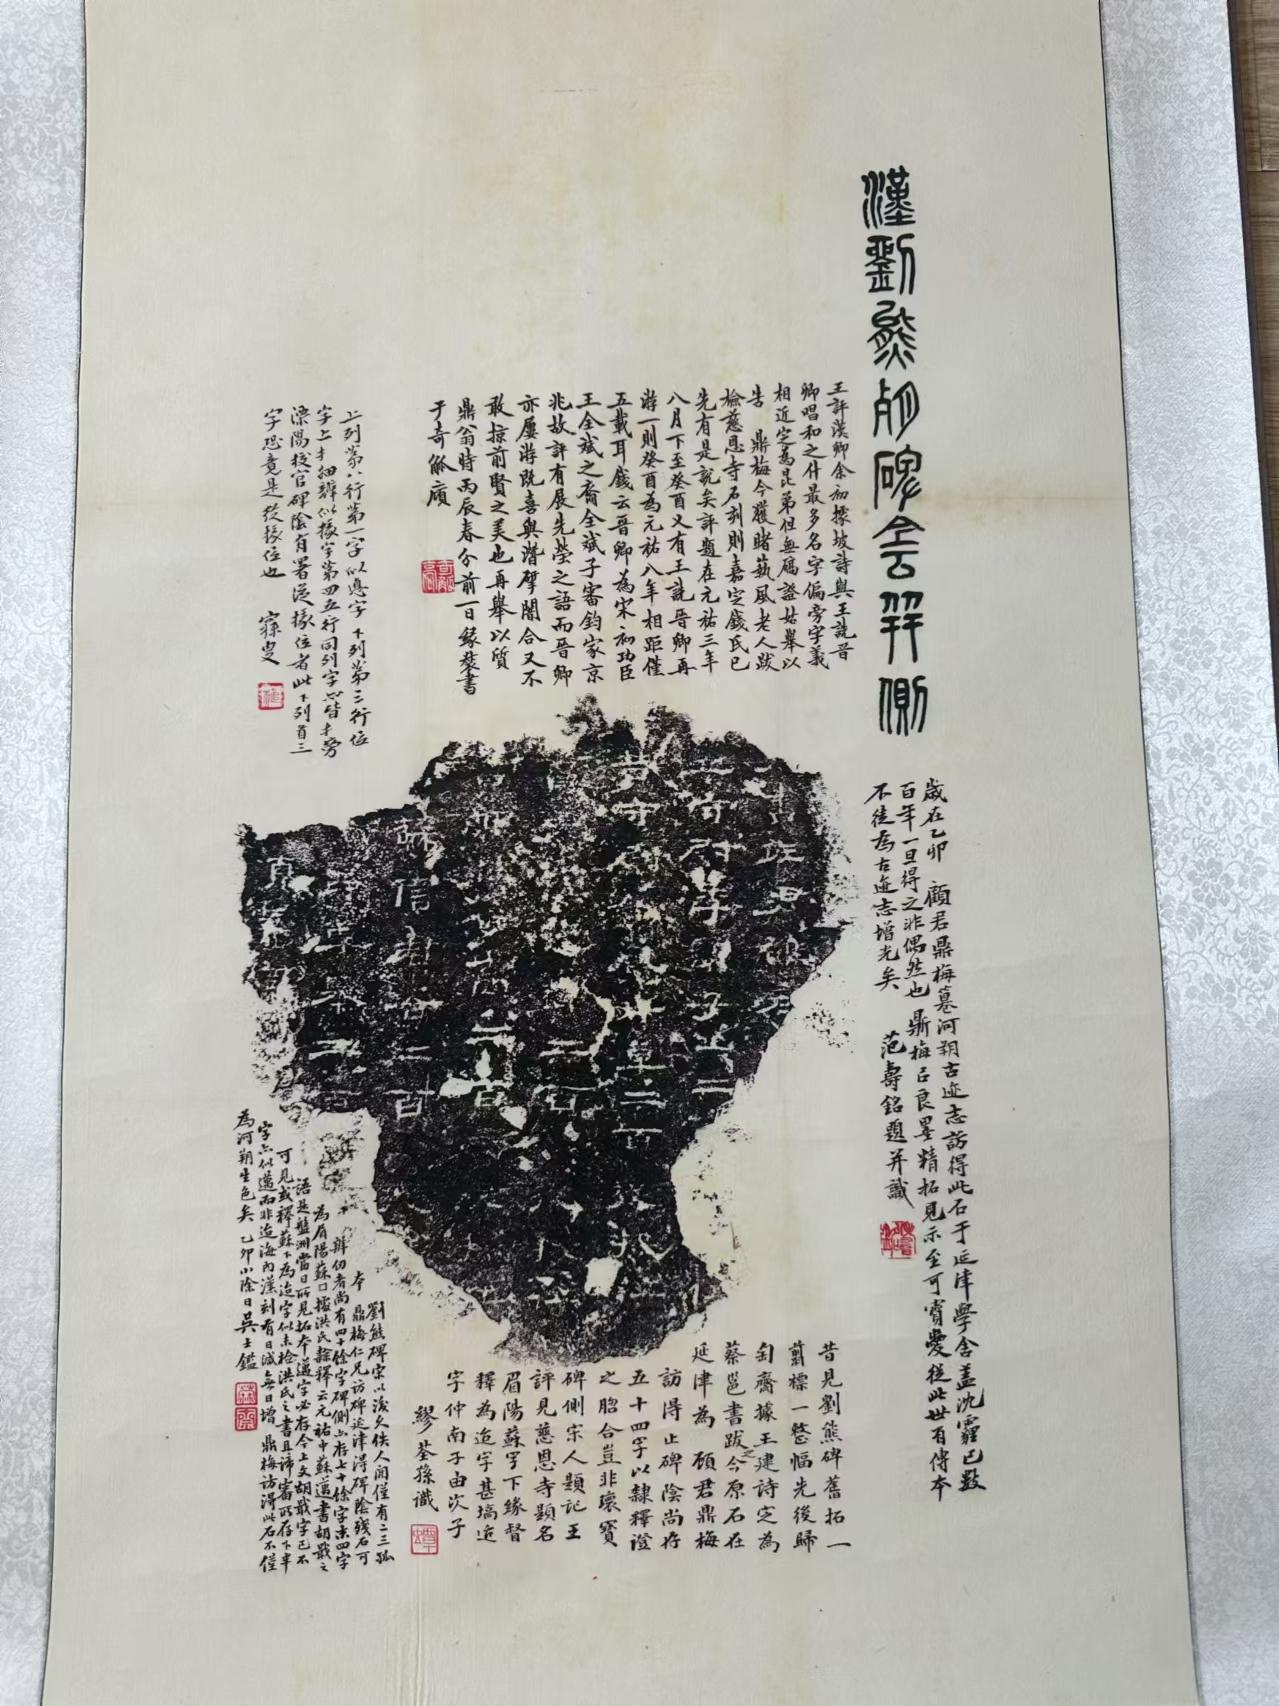 漢劉熊殘碑陰并側
歲在乙卯 顧君鼎梅纂河朔古迹志訪得此石于延津學舍盖沈霾已數
百年一旦得之非偶然也 鼎梅已良墨精拓見示至可寶愛從此世有傳本
不徒為古迹志增光矣 范壽銘題并識
王評漢卿余初據坡詩與王詵晉
卿唱和之什最多名字偏旁字義
相近定為昆弟但無碻證姑舉以
告 鼎梅今獲睹蓺風老人跋
檢慈恩寺石刻則嘉定錢氏已
先有是說矣評題在元祐三年
八月下至癸酉又有王詵晉卿再
游一則癸酉為元祐八年相距僅
五載耳錢云晉卿為宋初功臣
王全斌之裔全斌子審鈞家京
兆故評有展先塋之語而晉卿
亦屢游既喜與潛揅闇合又不
敢掠前賢之美也再舉以質
鼎翁時丙辰春分前一日緣裝書
于奇觚廎
上列第八行第一字似惠字下列第三行位
字上才細辨似掾字第四五行同列字亦皆才旁
溧陽校官碑陰有署從掾位者此下列首三
字恐竟是從掾位也 寐叟
昔見劉熊碑舊拓一
翦標一整幅先後歸
匋齋據王建詩定為
蔡邕書跋之今原石在
延津為 顧君鼎梅
訪得止碑陰尚存
五十四字以隸釋證
之脗合豈非瓌寳
碑側宋人題記王
評見慈恩寺題名
眉陽蘇字下緣督
釋為迨字甚塙迨
字仲南子由次子
繆荃孫識
劉熊碑宋以後久佚人間僅有二三孤
本 鼎梅仁兄訪碑延津得碑陰殘石可
辨仞者尚有四十餘字碑側亦存七十餘字末四字
為眉陽蘇囗據洪氏隸釋云元祐中蘇邁書胡戢之
語是盤洲當日所見拓本邁字必存今上文胡戢字已不
可見或釋蘇下為迨字似未檢洪氏之書且諦審所存下半
字亦似邁而非迨海內漢刻有日減無日增 鼎梅訪得此石不僅
為河朔生色矣 乙卯小除日吳士鑑